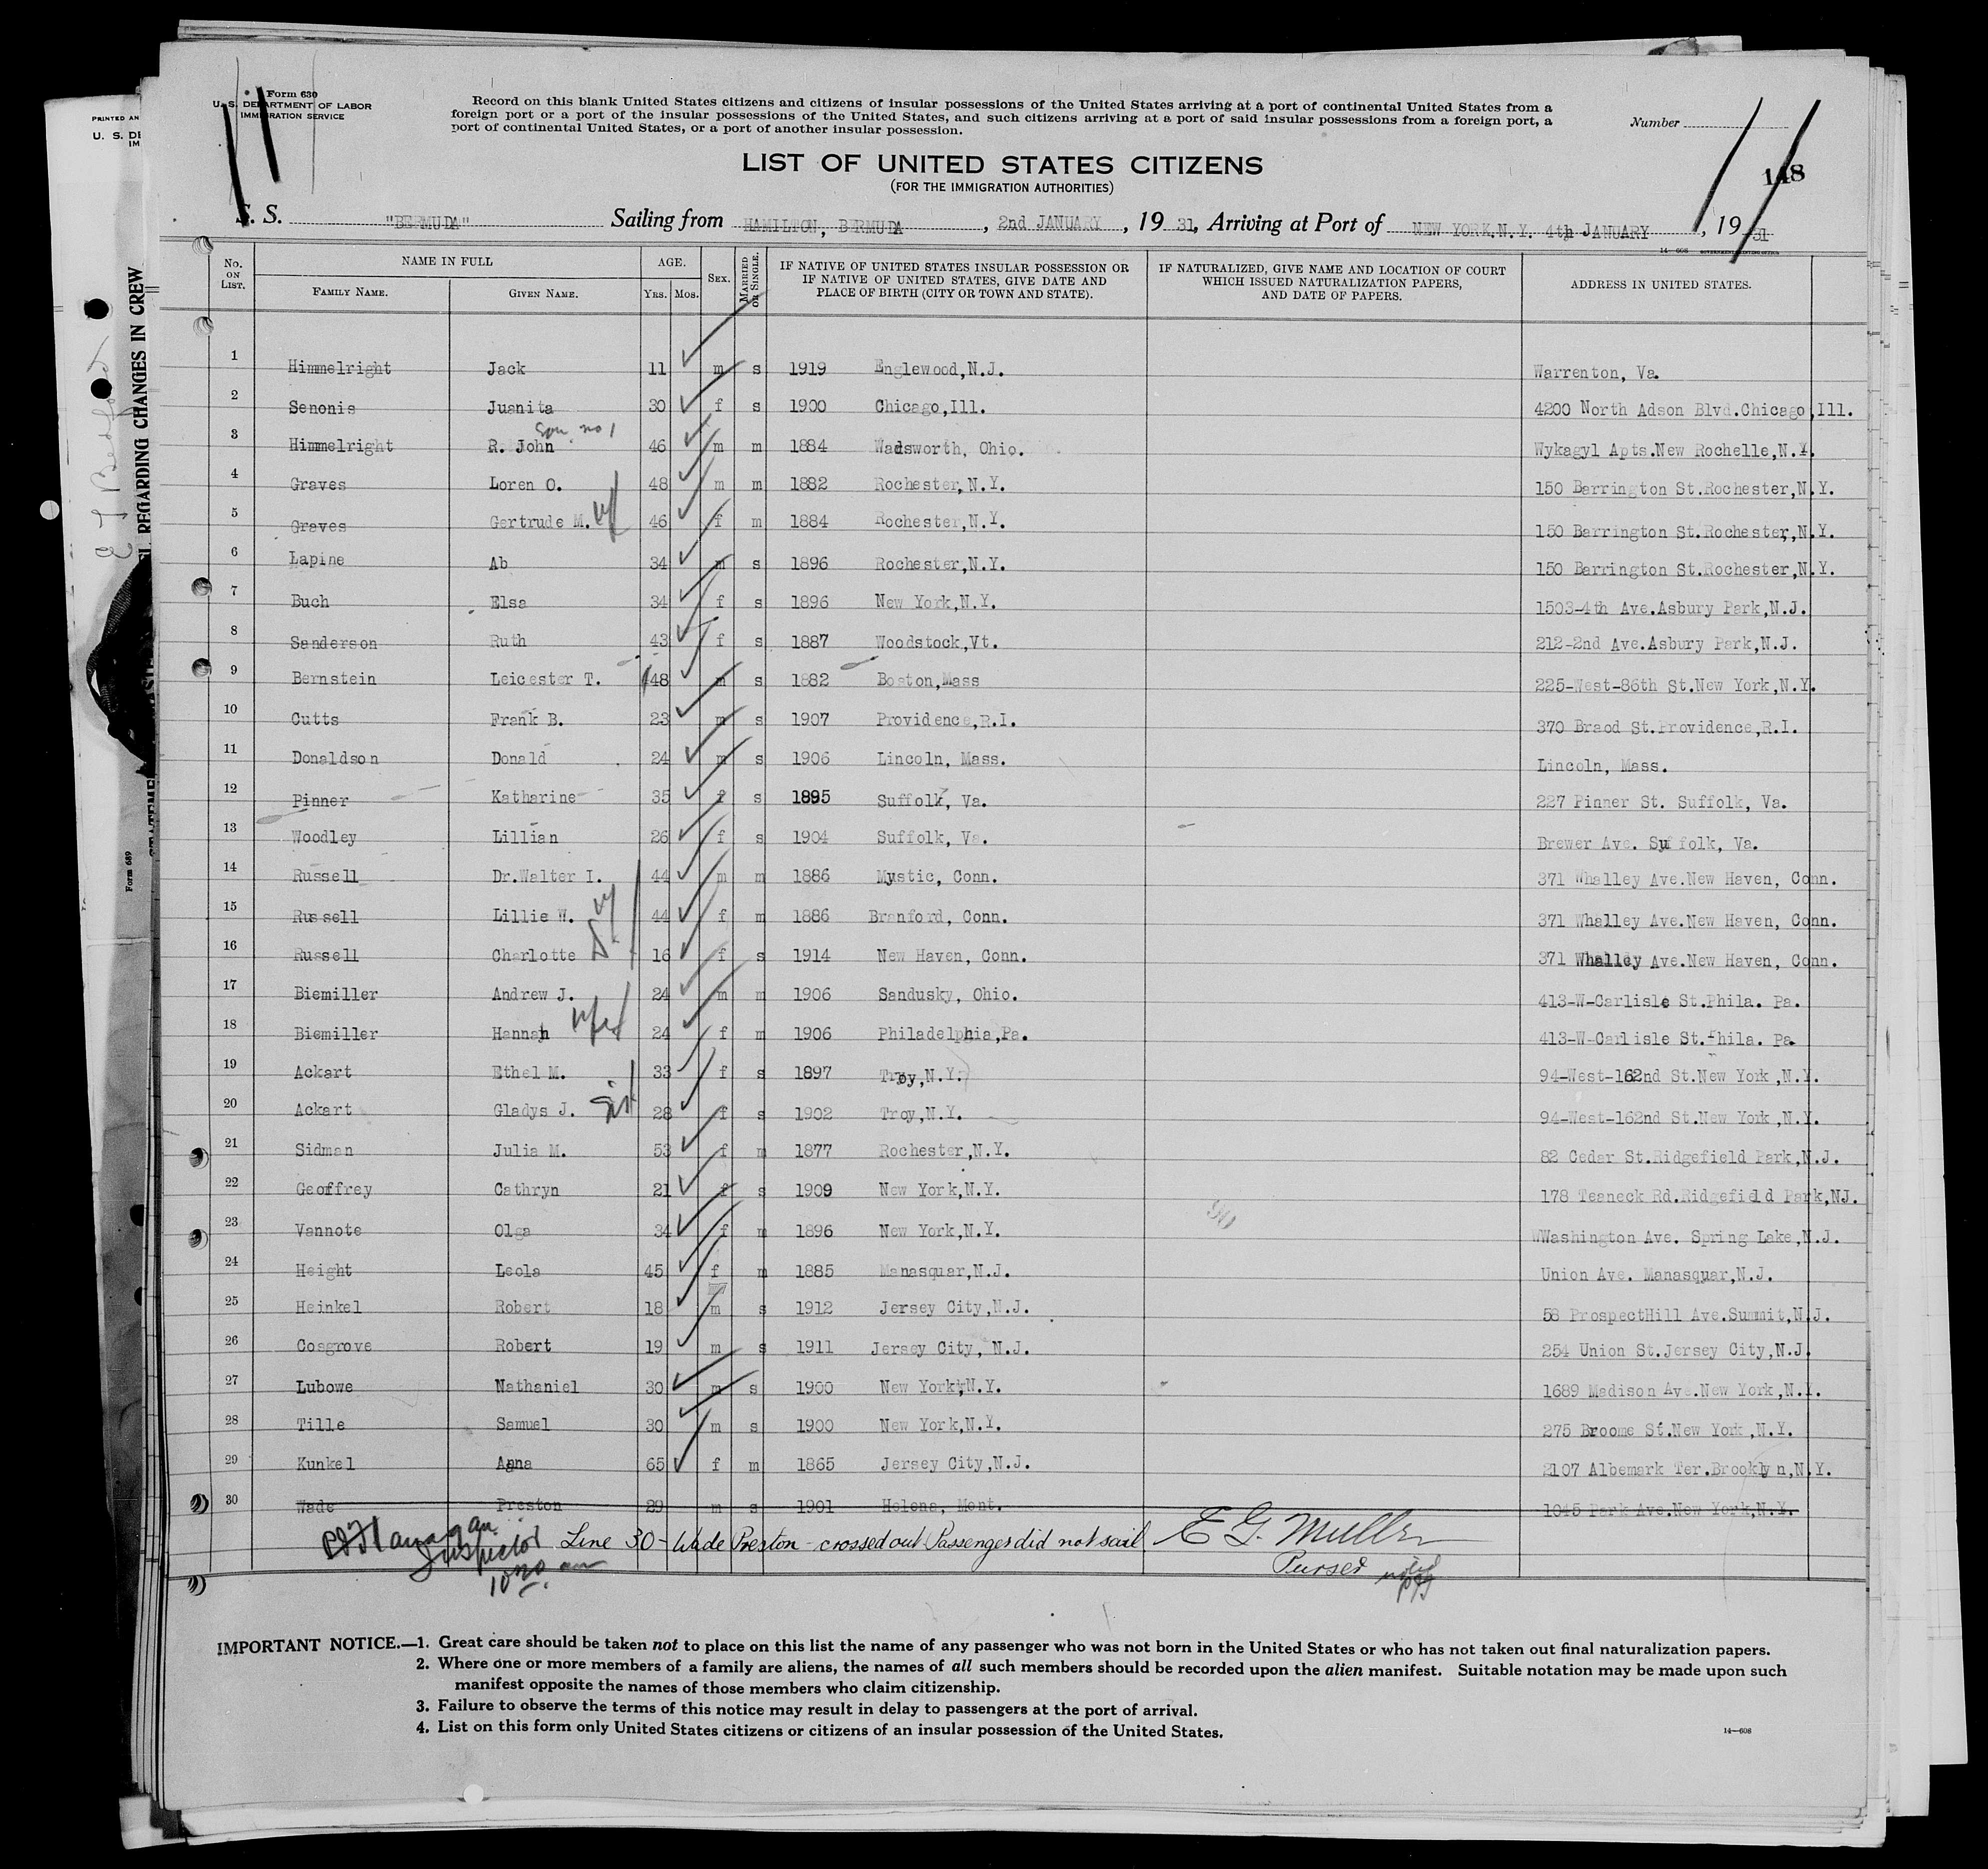 Form 630
U. S. DEPARTMENT OF LABOR
IMMIGRATION SERVICE
Record on this blank United States citizens and citizens of insular possessions of the United States arriving at a port of continental United States from a
foreign port or a port of the insular possessions of the United States, and such citizens arriving at a port of said insular possessions from a foreign port, a
port of continental United States, or a port of another insular possession.
Number
148
LIST OF UNITED STATES CITIZENS
(FOR THE IMMIGRATION AUTHORITIES)
S. S. "BERMUDA" Sailing from HAMILTON, BERMUDA, 2nd JANUARY, 19 31, Arriving at Port of NEW YORK.N.Y. 4th JANUARY, 19 31
14—608 GOVERNMENT PRINTING OFFICE
No. ON LIST. NAME IN FULL AGE. SEX. MARRIED OR SINGLE. IF NATIVE OF UNITED STATES INSULAR POSSESSION OR IF NATIVE OF UNITED STATES, GIVE DATE AND PLACE OF BIRTH (CITY OR TOWN AND STATE). IF NATURALIZED, GIVE NAME AND LOCATION OF COURT WHICH ISSUED NATURALIZATION PAPERS, AND DATE OF PAPERS. ADDRESS IN UNITED STATES.
FAMILY NAME. GIVEN NAME. YRS. MOS.
1 Himmelright Jack 11 m s 1919 Englewood,N.J. Warrenton, Va.
2 Senonis Juanita 30 f s 1900 Chicago,Ill. 4200 North Adson Blvd.Chicago,Ill.
son no 1
3 Himmelright R. John 46 m m 1884 Wadsworth, Ohio. Wykagyl Apts.New Rochelle,N.Y.
4 Graves Loren O. 48 m m 1882 Rochester,N.Y. 150 Barrington St.Rochester,N.Y.
5 Graves Gertrude M. 46 f m 1884 Rochester,N.Y. 150 Barrington St.Rochester,N.Y.
6 Lapine Ab 34 m s 1896 Rochester,N.Y. 150 Barrington St.Rochester,N.Y.
7 Buch Elsa 34 f s 1896 New York,N.Y. 1503-4th Ave.Asbury Park,N.J.
8 Sanderson Ruth 43 f s 1887 Woodstock,Vt. 212-2nd Ave.Asbury Park,N.J.
9 Bernstein Leicester T. 48 m s 1882 Boston,Mass 225-West-86th St.New York,N.Y.
10 Cutts Frank B. 23 m s 1907 Providence,R.I. 370 Braod St.Providence,R.I.
11 Donaldson Donald 24 m s 1906 Lincoln, Mass. Lincoln, Mass.
12 Pinner Katharine 35 f s 1895 Suffolk, Va. 227 Pinner St. Suffolk, Va.
13 Woodley Lillian 26 f s 1904 Suffolk, Va. Brewer Ave. Suffolk, Va.
14 Russell Dr.Walter I. 44 m m 1886 Mystic, Conn. 371 Whalley Ave.New Haven, Conn.
15 Russell Lillie W. 44 f m 1886 Branford, Conn. 371 Whalley Ave.New Haven, Conn.
16 Russell Charlotte 16 f s 1914 New Haven, Conn. 371 Whalley Ave.New Haven, Conn.
17 Biemiller Andrew J. 24 m m 1906 Sandusky, Ohio. 413-W-Carlisle St.Phila. Pa.
18 Biemiller Hannah 24 f m 1906 Philadelphia,Pa. 413-W-Carlisle St.Phila. Pa
19 Ackart Ethel M. 33 f s 1897 Troy,N.Y. 94-West-162nd St.New York,N.Y.
20 Ackart Gladys J. 28 f s 1902 Troy,N.Y. 94-West-162nd St.New York,N.Y.
21 Sidman Julia M. 53 f m 1877 Rochester,N.Y. 82 Cedar St.Ridgefield Park,N.J.
22 Geoffrey Cathryn 21 f s 1909 New York,N.Y. 178 Teaneck Rd.Ridgefield Park,NJ.
23 Vannote Olga 34 f m 1896 New York,N.Y. WWashington Ave. Spring Lake,N.J.
24 Height Leola 45 f m 1885 Manasquar,N.J. Union Ave. Manasquar,N.J.
25 Heinkel Robert 18 m s 1912 Jersey City,N.J. 58 ProspectHill Ave.Summit,N.J.
26 Cosgrove Robert 19 m s 1911 Jersey City, N.J. 254 Union St.Jersey City,N.J.
27 Lubowe Nathaniel 30 m s 1900 New York,N.Y. 1689 Madison Ave.New York,N.Y.
28 Tille Samuel 30 m s 1900 New York,N.Y. 275 Broome St.New York,N.Y.
29 Kunkel Anna 65 f m 1865 Jersey City,N.J. 2107 Albemark Ter.Brooklyn,N.Y.
30 Wade Preston 29 m s 1901 Helena, Mont. 1045 Park Ave.New York,N.Y.
Flanagan Inspector
Line 30 - Wade Preston - crossed out Passenger did not sail E G. Muller
Purser
IMPORTANT NOTICE.—1. Great care should be taken not to place on this list the name of any passenger who was not born in the United States or who has not taken out final naturalization papers.
2. Where one or more members of a family are aliens, the names of all such members should be recorded upon the alien manifest. Suitable notation may be made upon such
manifest opposite the names of those members who claim citizenship.
3. Failure to observe the terms of this notice may result in delay to passengers at the port of arrival.
4. List on this form only United States citizens or citizens of an insular possession of the United States.
14—608
REGARDING CHANGES IN CREW
Form 689
PRINTED
U. S. DE
IM